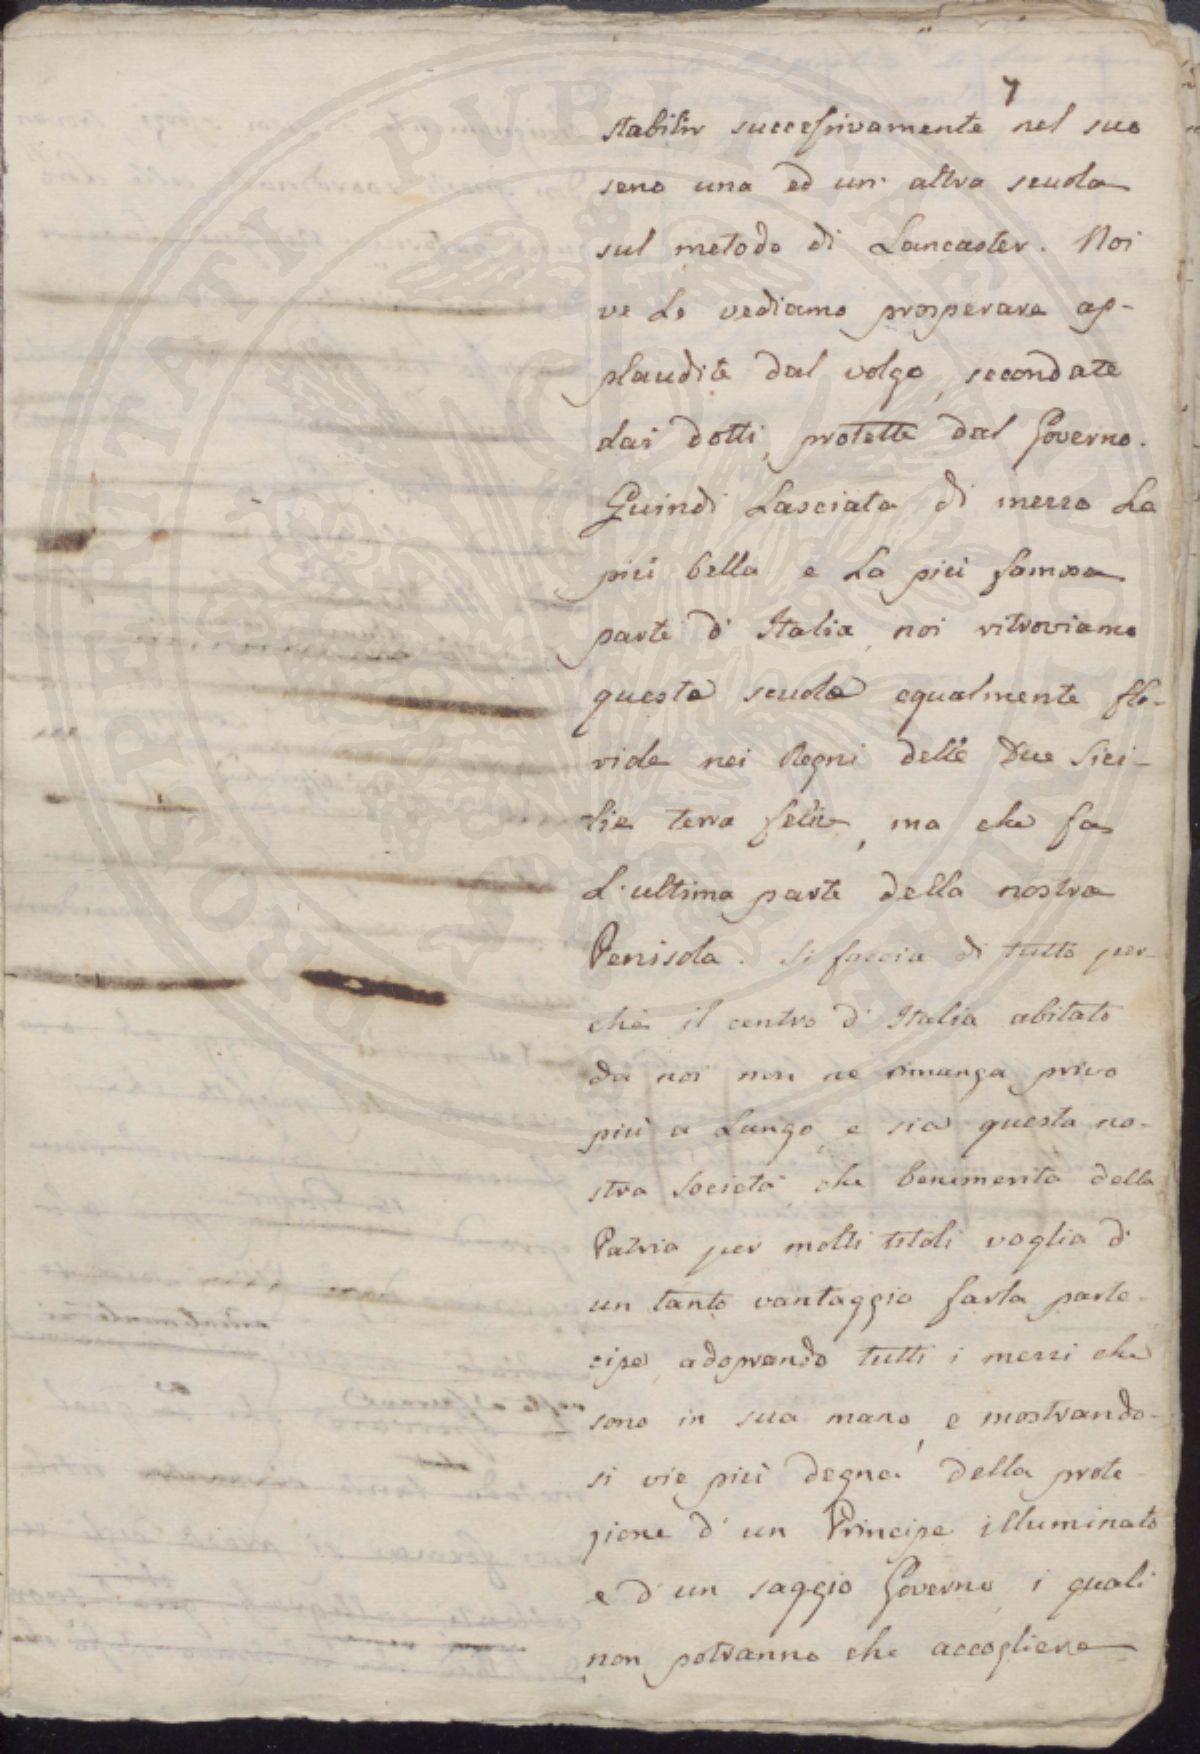 7
stabilir successivamente nel suo
seno una ed un' altra scuola
sul metodo di Lancaster. Noi
ve le vediamo prosperare ap-
plaudite dal volgo, secondate
dai dotti, protette dal Governo.
Quindi lasciata di mezzo la
più bella e la più famosa
parte d' Italia, noi ritroviamo
queste scuole egualmente flo-
ride nei Regni delle Due Sici-
lie terra felice, ma che fa
l'ultima parte della nostra
Penisola. Si faccia di tutto per-
chè il centro d' Italia abitato
da noi non ne rimanga privo
più a lungo, e sia questa no-
stra Società, che benemerita della
Patria per molti titoli voglia d'
un tanto vantaggio farla parte-
cipe, adoprando tutti i mezzi che
sono in sua mano, e mostrando-
si vie più degna della prote-
zione d' un Principe illuminato
e d' un saggio Governo, i quali
non potranno che accogliere